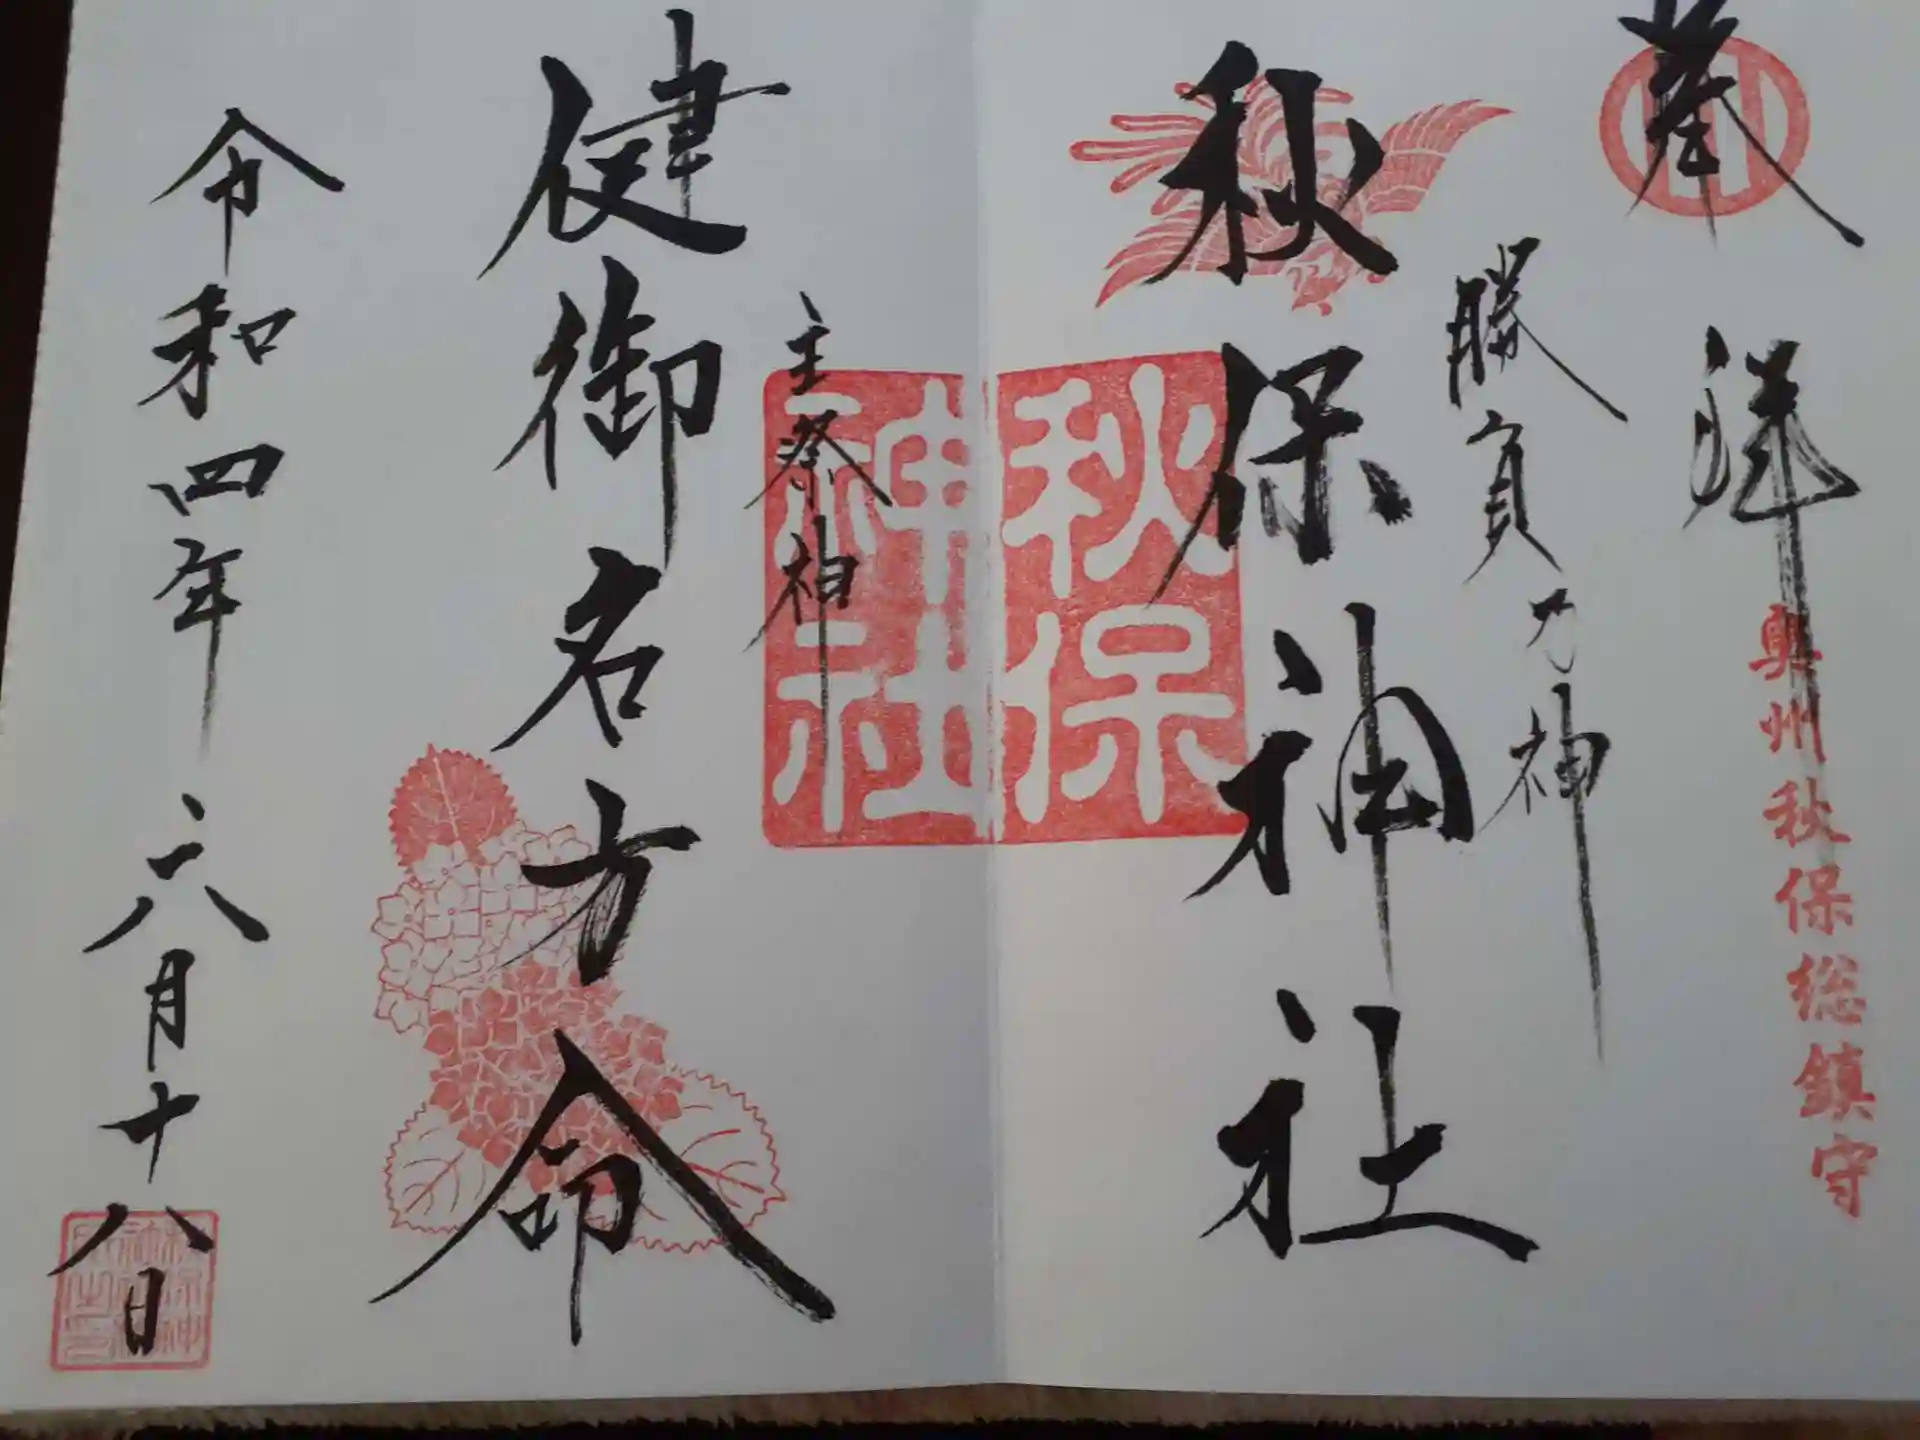 奉拝
奥州秋保総鎮守
勝負乃神
秋保神社
秋保
神社
主祭神
健御名方命
令和四年六月十八日